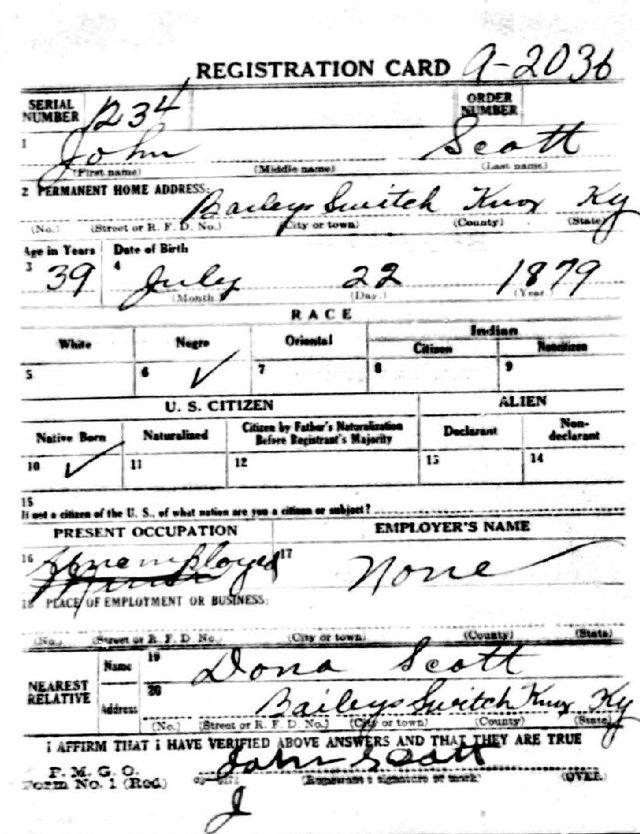 REGISTRATION CARD A-2036
SERIAL NUMBER 1234 ORDER NUMBER
1 John Scott
(First name) (Middle name) (Last name)
2 PERMANENT HOME ADDRESS:
Baileys Switch Knox Ky
(No.) (Street or R. F. D. No.) (City or town) (County) (State)
Age in Years Date of Birth
3 39 4 July 22 1879
(Month) (Day) (Year)
RACE
White Negro Oriental Indian
Citizen Noncitizen
5 6 ✓ 7 8 9
U. S. CITIZEN ALIEN
Native Born Naturalized Citizen by Father's Naturalization Before Registrant's Majority Declarant Non-declarant
10 ✓ 11 12 13 14
15
If not a citizen of the U. S., of what nation are you a citizen or subject?
PRESENT OCCUPATION EMPLOYER'S NAME
16 Unemployed 17 None
18 PLACE OF EMPLOYMENT OR BUSINESS:
(No.) (Street or R. F. D. No.) (City or town) (County) (State)
NEAREST RELATIVE Name 19 Dona Scott
Address 20 Baileys Switch Knox Ky
(No.) (Street or R. F. D. No.) (City or town) (County) (State)
I AFFIRM THAT I HAVE VERIFIED ABOVE ANSWERS AND THAT THEY ARE TRUE
P. M. G. O.
Form No. 1 (Red) John Scott
(Registrant's signature or mark) (OVER)
J